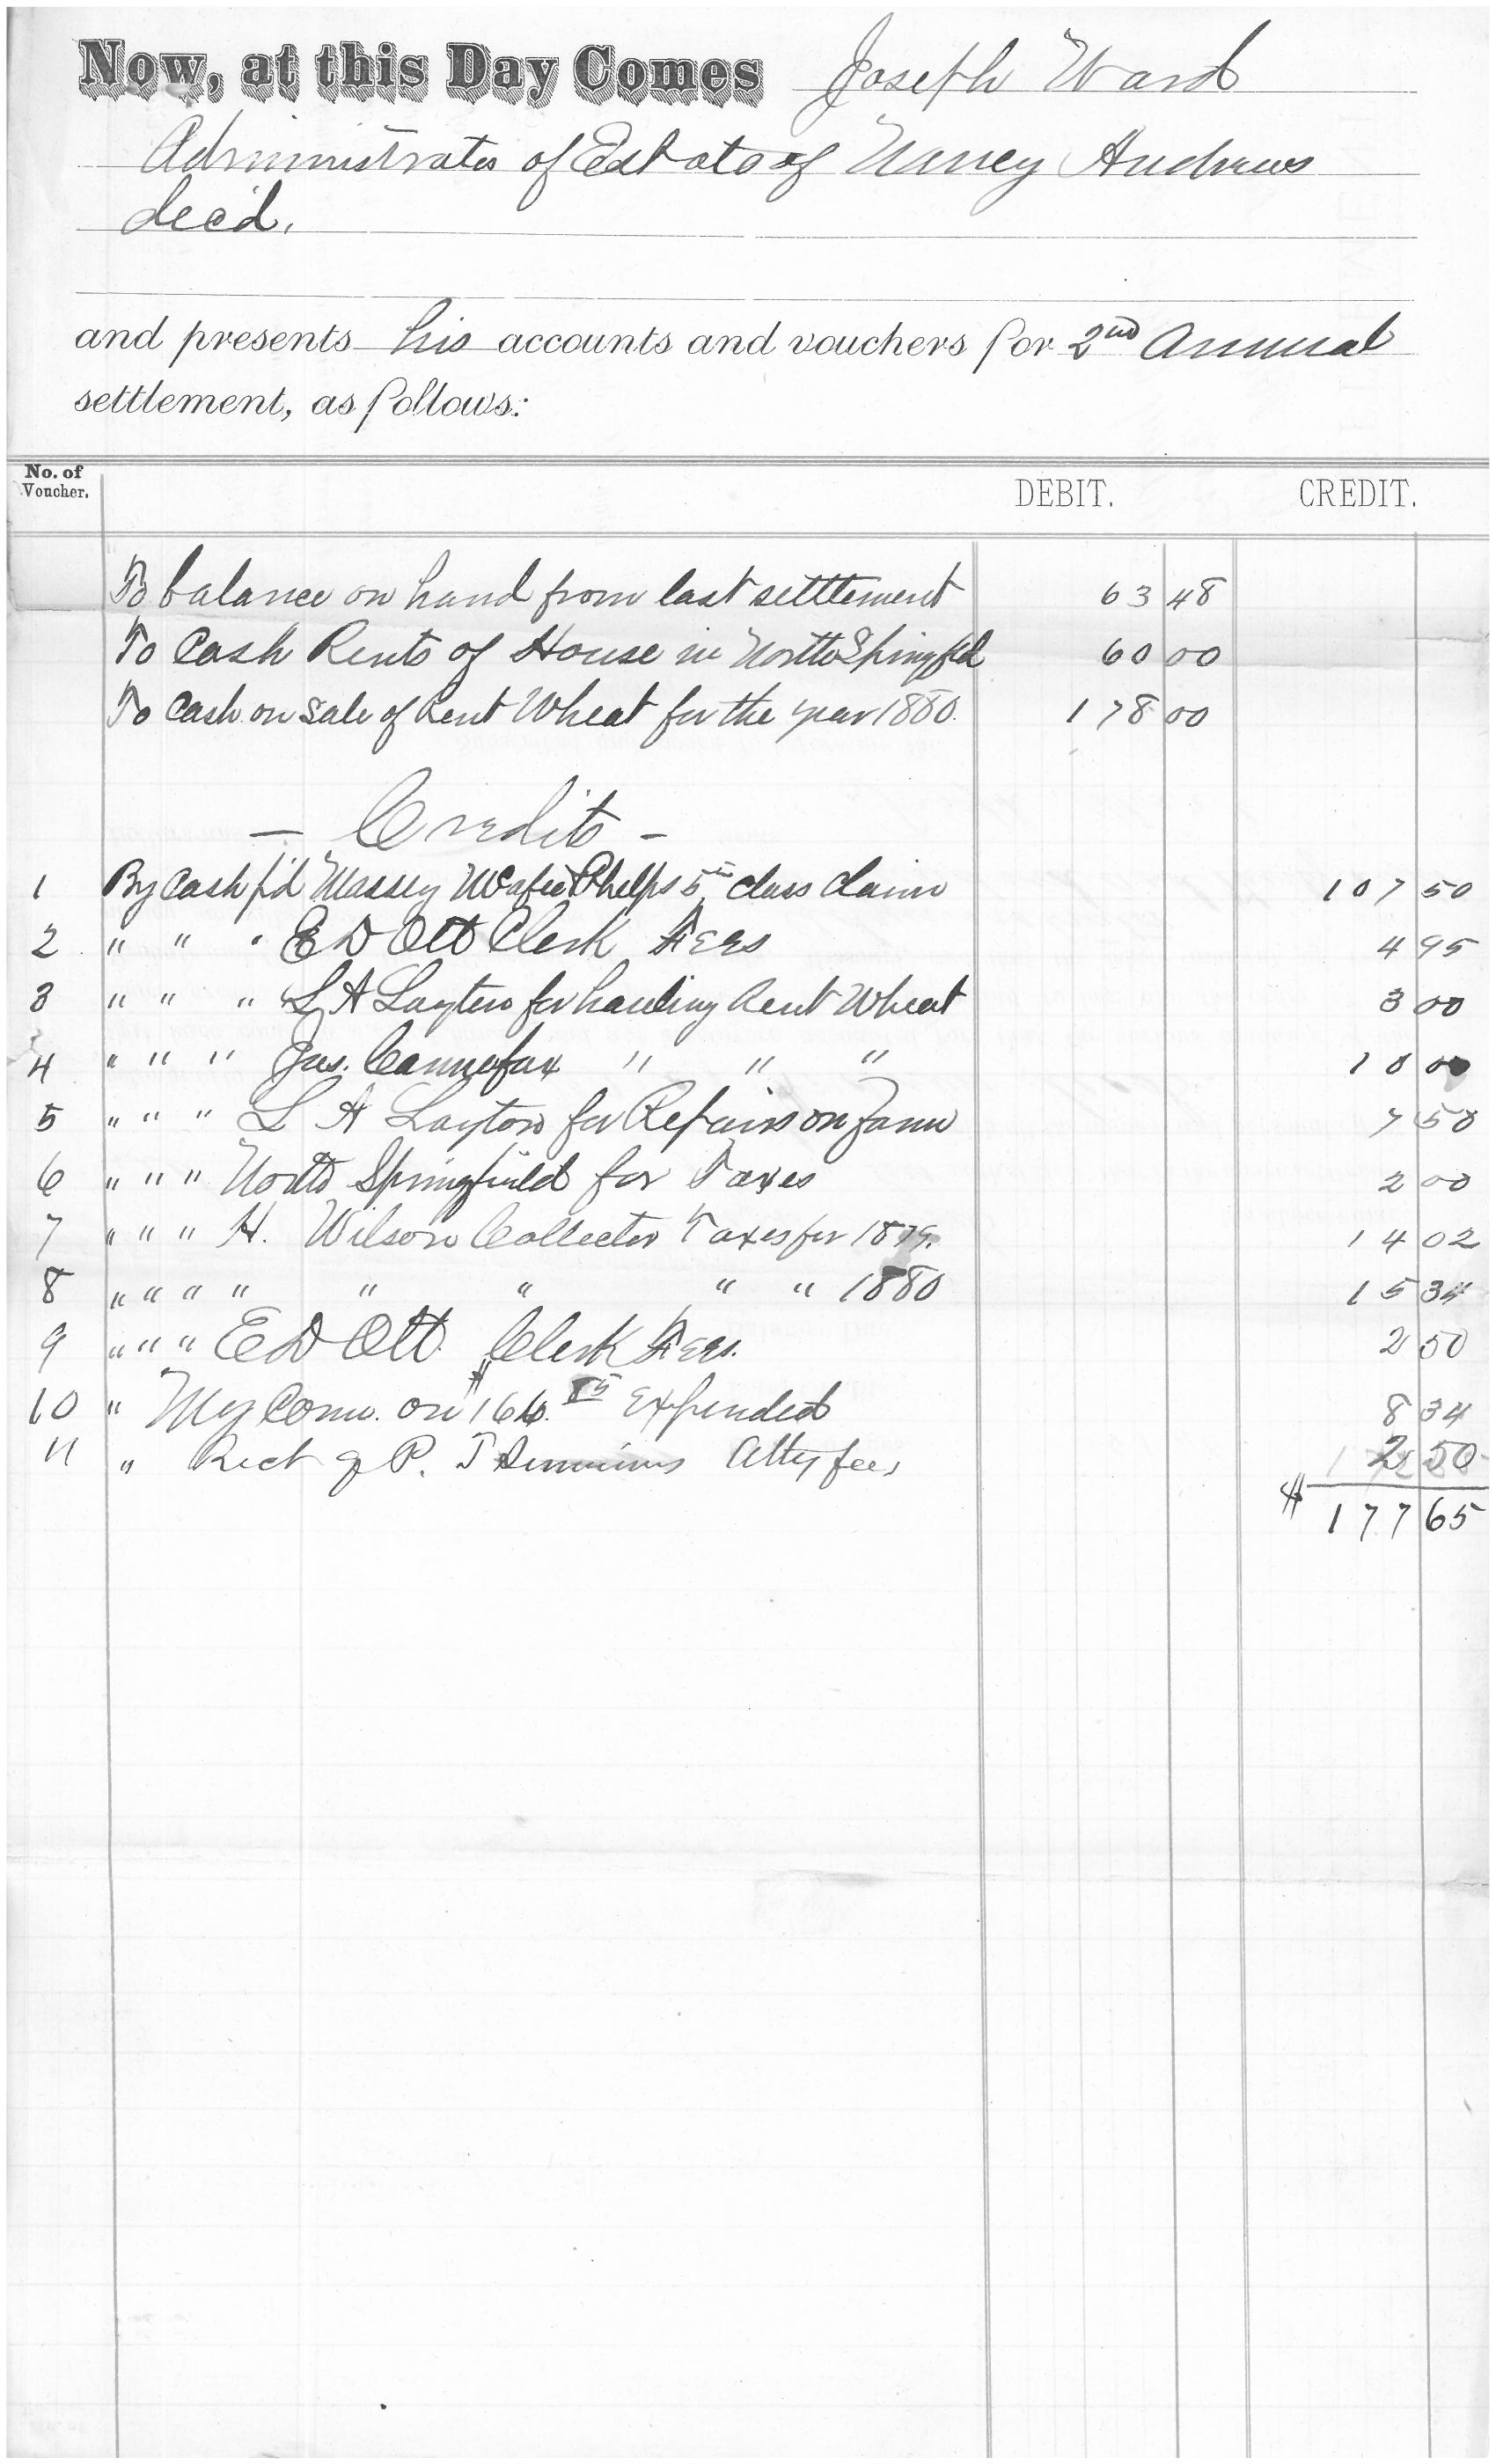 Now, at this Day Comes Joseph Ward
Administrator of Estate of Nancy Andrews
dec'd.
and presents his accounts and vouchers for 2nd Annual
settlement, as follows:
No. of Voucher. DEBIT. CREDIT.
To balance on hand from last settlement 63 48
To Cash Rents of House in North Springfld 60 00
To Cash on Sale of Rent Wheat for the year 1880. 178 00
— Credits -
1 By Cash p'd Massey McAfee & Phelps 5th class claim 107 50
2 " " " E D Ott Clerk Fees 4 95
3 " " " L A Layton for hauling Rent Wheat 3 00
4 " " " Jas. Cannefax " " " 10 00
5 " " " L A Layton for Repairs on Farm 7 50
6 " " " North Springfield for Taxes 2 00
7 " " " H. Wilson Collector Taxes for 1879. 14 02
8 " " " " " " " " 1880 15 34
9 " " " E D Ott. Clerk Fees. 2 50
10 " My Com. on $166.85 Expended 8 34
11 " Rect of P. T Simmons Atty fees 2 50
$ 177 65